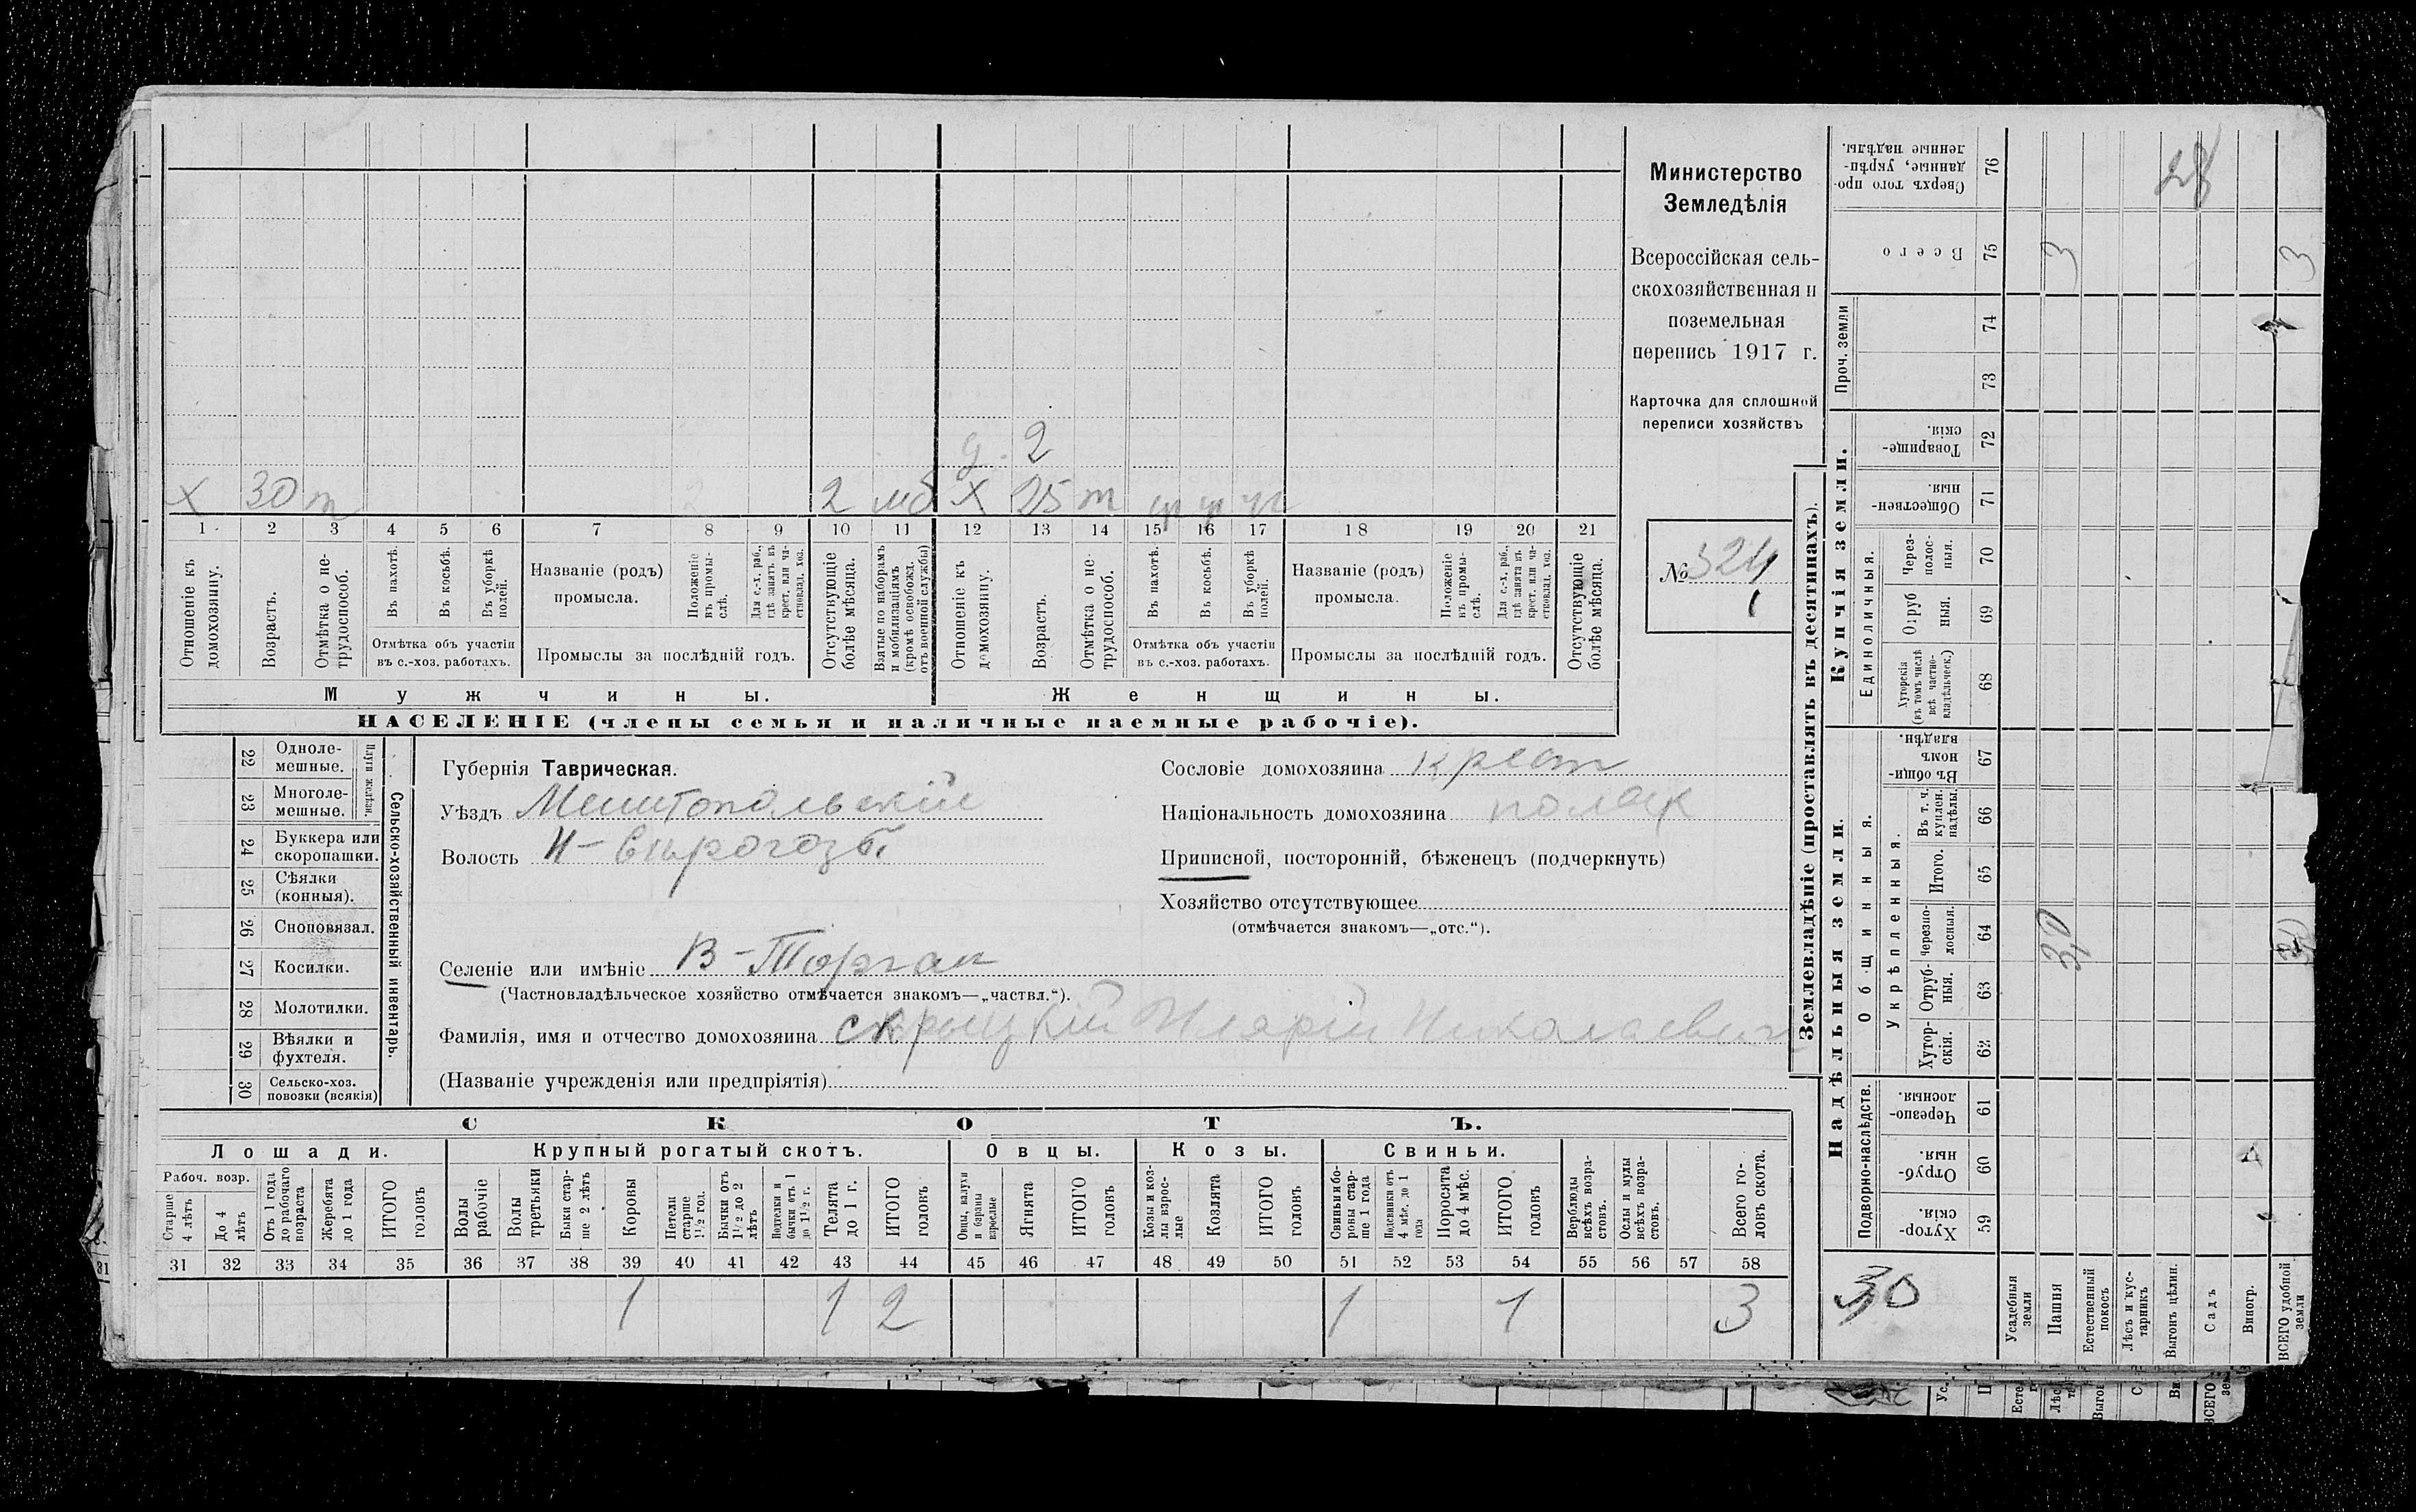 Министерство
Земледѣлія
Всероссійская сель-
скохозяйственная и
поземельная
перепись 1917 г.
Карточка для сплошной
переписи хозяйствъ
№ 324
1
д. 2
х 30 т 2 мб х 25 т
1 2 3 4 5 6 7 8 9 10 11 12 13 14 15 16 17 18 19 20 21
Отношеніе къ домохозяину.
Возрастъ.
Отмѣтка о не-трудоспособ.
Въ пахотѣ.
Въ косьбѣ.
Въ уборкѣ полей.
Отмѣтка объ участіи въ с.-хоз. работахъ.
Названіе (родъ) промысла.
Положеніе въ промы-слѣ.
Для с.-х. раб., гдѣ занятъ въ крест. или ча-стновлад. хоз.
Промыслы за послѣдній годъ.
Отсутствующіе болѣе мѣсяца.
Взятые по наборамъ и мобилизаціямъ (кромѣ освобожд. отъ военной службы)
Отношеніе къ домохозяину.
Возрастъ.
Отмѣтка о не-трудоспособ.
Въ пахотѣ.
Въ косьбѣ.
Въ уборкѣ полей.
Отмѣтка объ участіи въ с.-хоз. работахъ.
Названіе (родъ) промысла.
Положеніе въ промы-слѣ.
Для с.-х. раб., гдѣ занята въ крест. или ча-стновлад. хоз.
Промыслы за послѣдній годъ.
Отсутствующіе болѣе мѣсяца.
Мужчины. Женщины.
НАСЕЛЕНІЕ (члены семьи и наличные наемные рабочіе).
Сельско-хозяйственный инвентарь.
Плуги желѣзн.
22 Одноле-мешные.
23 Многоле-мешные.
24 Буккера или скоропашки.
25 Сѣялки (конныя).
26 Сноповязал.
27 Косилки.
28 Молотилки.
29 Вѣялки и фухтеля.
30 Сельско-хоз. повозки (всякія)
Губернія Таврическая.
Уѣздъ Мелитопольскій
Волость Н-Сырогозс.
Селеніе или имѣніе В-Торгаи
(Частновладѣльческое хозяйство отмѣчается знакомъ—„частвл.“).
Фамилія, имя и отчество домохозяина Николаевич
(Названіе учрежденія или предпріятія)
Сословіе домохозяина крест
Національность домохозяина поляк
Приписной, посторонній, бѣженецъ (подчеркнуть)
Хозяйство отсутствующее
(отмѣчается знакомъ—„отс.“).
СКОТЪ.
Лошади. Крупный рогатый скотъ. Овцы. Козы. Свиньи.
Рабоч. возр.
Старше 4 лѣтъ
До 4 лѣтъ
Отъ 1 года до рабочаго возраста
Жеребята до 1 года
ИТОГО головъ
Волы рабочіе
Волы третьяки
Быки стар-ше 2 лѣтъ
Коровы
Нетели старше 1½ год.
Бычки отъ 1½ до 2 лѣтъ
Подтелки и бычки отъ 1 до 1½ г.
Телята до 1 г.
ИТОГО головъ
Овцы, валухи и бараны взрослые
Ягнята
ИТОГО головъ
Козы и коз-лы взрос-лые
Козлята
ИТОГО головъ
Свиньи и бо-ровы стар-ше 1 года
Подсвинки отъ 4 мѣс. до 1 года
Поросята до 4 мѣс.
ИТОГО головъ
Верблюды всѣхъ возра-стовъ.
Ослы и мулы всѣхъ возра-стовъ.
Всего го-ловъ скота.
31 32 33 34 35 36 37 38 39 40 41 42 43 44 45 46 47 48 49 50 51 52 53 54 55 56 57 58
1 1 2 1 1 3
Землевладѣніе (проставлять въ десятинахъ).
Надѣльныя земли.
Купчія земли.
Проч. земли
Подворно-наслѣдств.
Общинныя.
Укрѣпленныя.
Единоличныя.
Хутор-скія. 59
Отруб-ныя. 60
Черезпо-лосныя. 61
Хутор-скія. 62
Отруб-ныя. 63
Черезпо-лосныя. 64
Итого. 65
Въ т. ч. куплен. надѣлы. 66
Въ общин-номъ владѣн. 67
Хуторскія (въ томъ числѣ всѣ частно-владѣльческ.) 68
Отруб ныя. 69
Через-полос-ныя. 70
Обществен-ныя. 71
Товарище-скія. 72
73
74
Всего 75
Сверхъ того про-данные, укрѣп-ленные надѣлы. 76
28
3 3
30
30
Усадебныя земли
Пашня
Естественный покосъ
Лѣсъ и кус-тарникъ
Выгонъ цѣлин.
Садъ
Виногр.
ВСЕГО удобной земли